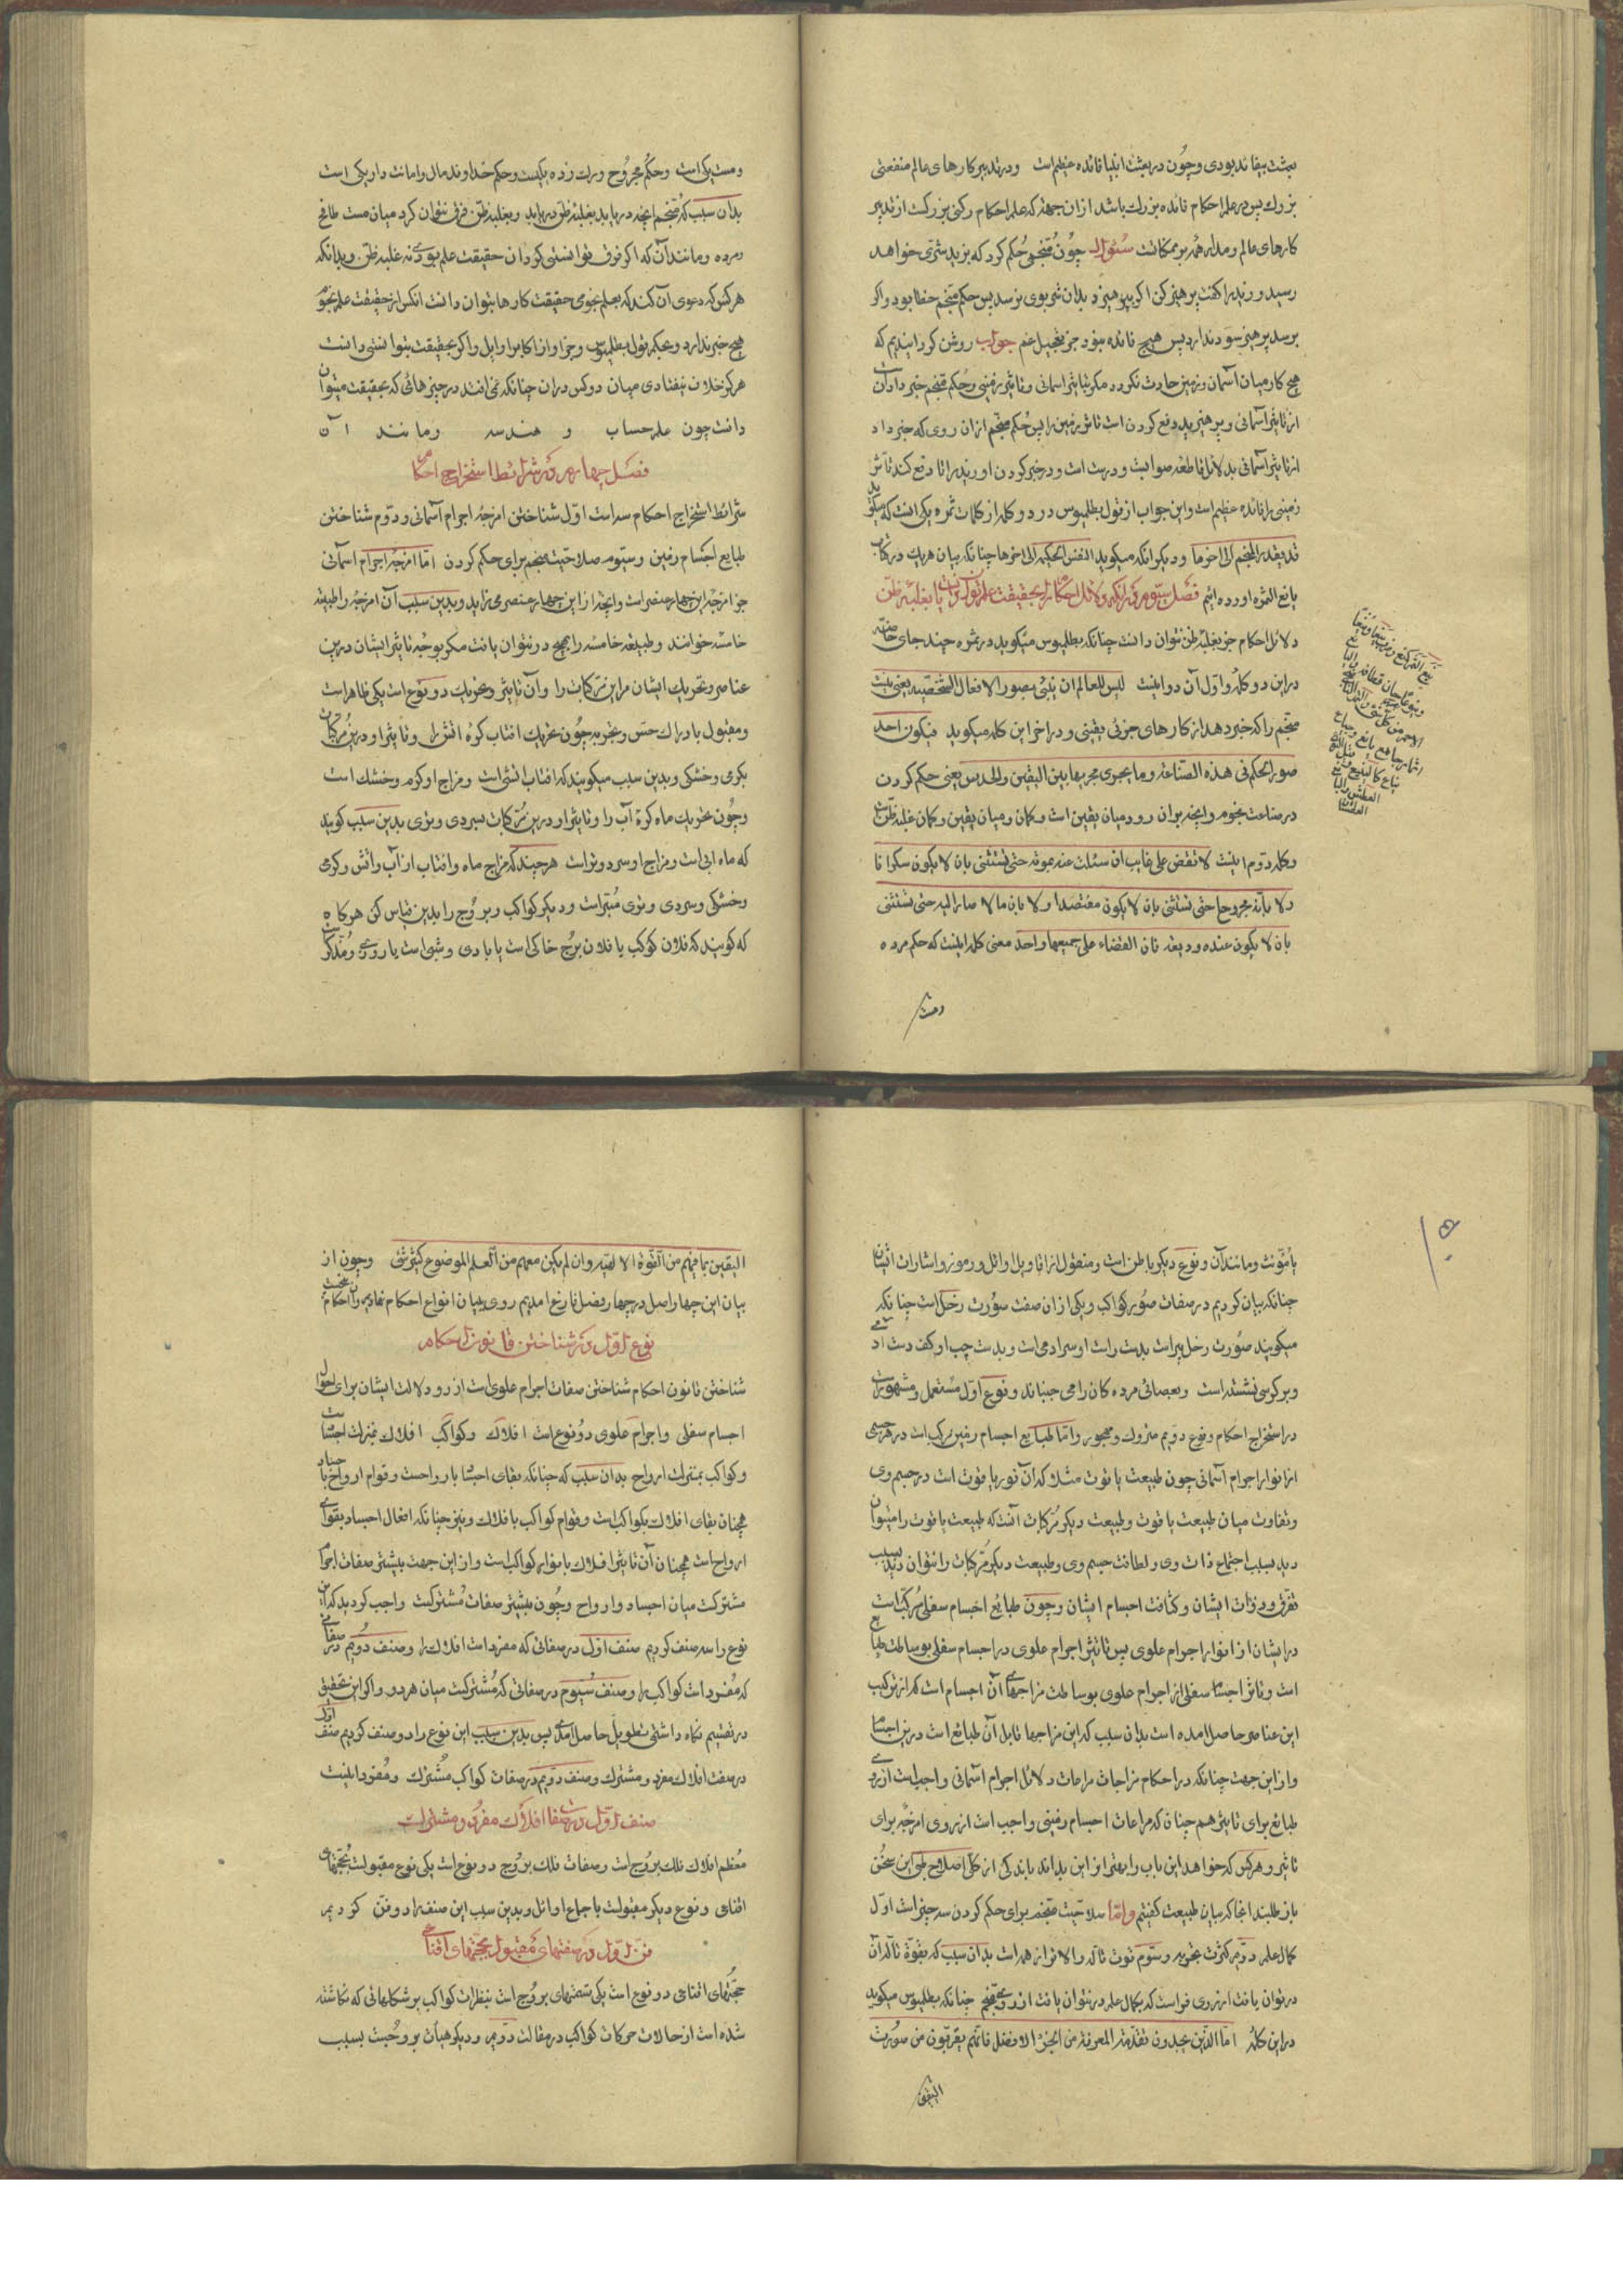 بعثت بیفایده بودی وچون در بعثت انبیا فائده عظیم است ودر تدبیر کارهای عالم منفعتی
بزرك پس در علم احکام فائده بزرك باشد ازان جهة که علم احکام رکنی بزرکست از تدبیر
کارهای عالم ومدار همه بر ممکنانست سؤال چون منجمی حکم کرد که بزید شری خواهد
رسید وزید را کفت پرهیز کن اکر بپرهیزد بدان شر بوی نرسد پس حکم منجم خطا بود واکر
برسد پرهیز سود ندارد پس هیچ فائده نبود جز تعجیل غم جواب روشن کردانیدیم که
هیچ کار میان آسمان وزمین حادث نکردد مکر بتاثیر آسمانی وتاثیر زمینی وحکم منجم خبر دادنست
از تاثیر آسمانی وپرهیز زید دفع کردن است تاثیر زمین را پس حکم منجم ازان روی که خبر داد
از تاثیر آسمانی بدلائل قاطعه صوابست ودرست است ودر خبر کردن او زید را تا دفع کند تاثیر
زمینی را فائده عظیم است واین جواب از قول بطلمیوس در دو کلمه از کلمات ثمره یکی انست که میکوید
قد یقدر المنجم الی اخرها ودیکر انکه میکوید النفس الحکیمة الی اخرها چنانکه بیان هریك در کتاب
یانع الثمره اورده ایم فصل سوم در انکه دلائل احکام را بحقیقت علم توان دانست یا بغلبه ظن
دلائل احکام جز بغلبه ظن نتوان دانست چنانکه بطلمیوس میکوید در ثمره چند جای خاصه
در این دو کلمه واول آن دو اینست لیس للعالم ان ینبئ بصور الافعال الشخصیه یعنی نیست
منجم را که خبر دهد از کارهای جزوی یقینی ودر اخر این کلمه میکوید فیکون احد
صور الحکم فی هذه الصناعة وما یجری مجریها بین الیقین والحدس یعنی حکم کردن
در صناعت نجوم وانچه بران رود میان یقین است وکمان ومیان یقین وکمان غلبه ظن است
وکلمه دوم اینست لا تقض علی غایب ان سئلت عنه بموته حتی تستثنی بان لا یکون سکرانا
ولا بانه مجروحا حتی تستثنی بان لا یکون مفتصدا ولا بان مالا صار الیه حتی تستثنی
بان لا یکون عنده ودیعة فان القضاء علی جمیعها واحد معنی کلمه اینست که حکم مرده
ومست
ومست یکی است وحکم مجروح ورك زده یکیست وحکم خداوند مال وامانت دار یکی است
بدان سبب که منجم انچه دریابد بغلبه ظن دریابد وبغلبه ظن فرق نتوان کرد میان مست طافح
ومرده ومانند آن که اکر فرق توانستی کرد ان حقیقت علم بودی نه غلبه ظن وبدانکه
هر کس که دعوی آن کند که بعلم نجومی حقیقت کارها بتوان دانست انکس از حقیقت علم نجوم
هیچ خبر ندارد وبحکم قول بطلمیوس وجز او از اکابر اوایل واکر بحقیقت بتوانستی دانست
هرکز خلاف نیفتادی میان دو کس دران چنانکه نمی افتد در چیزهائی که بحقیقت میتوان
دانست چون علم حساب و هندسه ومانند آن
فصل چهارم در شرائط استخراج احکام
شرائط استخراج احکام سه است اول شناختن امزجه اجرام آسمانی ودوم شناختن
طبایع اجسام زمین وسوم صلاحیت منجم برای حکم کردن اما امزجه اجرام آسمانی
جز امزجه این چهار عنصر است وانچه از این چهار عنصر می زاید وبدین سبب آن امزجه را طبیعه
خامسه خوانند وطبیعه خامسه را هیچ در نتوان یافت مکر بوجه تاثیر ایشان درین
عناصر وتحریك ایشان مر این مرکبات را وآن تاثیر وتحریك دو نوع است یکی ظاهر است
ومقبول بادراك حس وتجربه چون تحریك افتاب کره اتش را وتاثیر او درین مرکبات
بکرمی وخشکی وبدین سبب میکویند که افتاب اتشی است ومزاج او کرم وخشك است
وچون تحریك ماه کره آب را وتاثیر او درین مرکبات بسردی وتری بدین سبب کویند
که ماه ابی است ومزاج او سرد وتر است هر چند که مزاج ماه وافتاب از آب واتش وکرمی
وخشکی وسردی وتری مبراست ودیکر کواکب وبروج را بدین قیاس کن هر کاه
که کویند که فلان کوکب یا فلان برج خاکی است یا بادی وشبی است یا روزی ومذکر است
یا مؤنث ومانند آن ونوع دیکر باطن است ومنقول از اقاویل اوائل ورموز واشارات ایشان
چنانکه بیان کردیم در صفات صور کواکب ویکی ازان صفت صورت زحل است چنانکه
میکویند صورت زحل پیر است بدست راست او سر ادمی است وبدست چپ او کف دست ادمی
وبر کرسی نشسته است وبعصائی مرده کان را می جنباند ونوع اول مستعمل ومشهور است
در استخراج احکام ونوع دویم متروك ومهجور واما طبایع اجسام زمین مرکب است در هر جسمی
از انوار اجرام آسمانی چون طبیعت یاقوت مثلا که آن نور یاقوت است در جسم وی
وتفاوت میان طبیعت یاقوت وطبیعت دیکر مرکبات آنست که طبیعت یاقوت را میتوان
دید بسبب اجتماع ذات وی ولطافت جسم وی وطبیعت دیکر مرکبات را نتوان دید بسبب
تفرق ودر ذات ایشان وکثافت اجسام ایشان وچون طبائع اجسام سفلی مرکب است
در ایشان از انوار اجرام علوی پس تاثیر اجرام علوی در اجسام سفلی بوساطت طبایع
است وتاثر اجسام سفلی از اجرام علوی بوساطت مزاجهای آن اجسام است که از ترکیب
این عناصر حاصل امده است بدان سبب که این مزاجها قابل آن طبائع است درین اجسام
واز این جهت چنانکه در احکام مزاجات مراعات دلائل اجرام آسمانی واجبست از روی
طبائع برای تاثیر هم چنان که مراعات اجسام زمینی واجب است از روی امزجه برای
تاثیر وهر کس که خواهد این باب را بهتر از این بداند باید که از کلی اصلاح طبی این سخن
باز طلبد انجا که بیان طبیعت کفتیم واما صلاحیت منجم برای حکم کردن سه چیز است اول
کمال علم دوم کثرت تجربه وسوم قوت تالّه والا تر از همه است بدان سبب که بقوة تالّه آن
در توان یافت از روی فراست که بکمال علم در نتوان یافت از روی تنجیم چنانکه بطلمیوس میکوید
در این کلمه اما الذین یجدون تقدمة المعرفة من الجزء الافضل فانهم یقربون من صورت
الیقین
الیقین بما فیهم من القوة الالهیه وان لم یکن معهم من العلم الموضوع کثیر شئ وچون از
بیان این چهار اصل در چهار فصل فارغ امدیم روی ببیان انواع احکام نهادیم
نوع اول در شناختن قانون احکام
شناختن قانون احکام شناختن صفات اجرام علوی است از رو دلالت ایشان برای احوال
اجسام سفلی واجرام علوی دو نوع است افلاك وکواکب افلاك بمنزلت اجساد است
وکواکب بمنزلت ارواح بدان سبب که چنانکه بقای اجساد بارواحست وقوام ارواح باجساد
همچنان بقای افلاك بکواکب است وقوام کواکب بافلاك ونیز چنانکه افعال اجساد بقوای
ارواح است همچنان آن تاثیر افلاك بانوار کواکب است واز این جهت بیشتر صفات اجرام
مشترکست میان اجساد وارواح وچون بیشتر صفات مشترکست واجب کردید که این
نوع را سه صنف کردیم صنف اول در صفاتی که مفرد است افلاك را وصنف دویم در صفاتی
که مفرد است کواکب را وصنف سیوم در صفاتی که مشترکست میان هر دو واکر این تحقیق
در تقسیم نکاه داشتی تطویل حاصل امدی پس بدین سبب این نوع را دو صنف کردیم صنف اول
در صفت افلاك مفرد ومشترك وصنف دویم در صفات کواکب مشترك ومفرد اینست
صنف اول در صفات افلاك مفرد ومشترك
معظم افلاك فلك بروج است وصفات فلك بروج دو نوع است یکی نوع مقبولست بحجتهای
اقناعی ونوع دیکر مقبولست باجماع اوائل وبدین سبب این صنف را دو فن کردیم
فن اول در صفتهای مقبول بحجتهای اقناعی
حجتهای اقناعی دو نوع است یکی قسمتهای بروج است بنظرات کواکب بر شکلهائی که نکاشته
شده است از حالات حرکات کواکب در مقالت دویم ودیکر هیأت بروجست بسبب